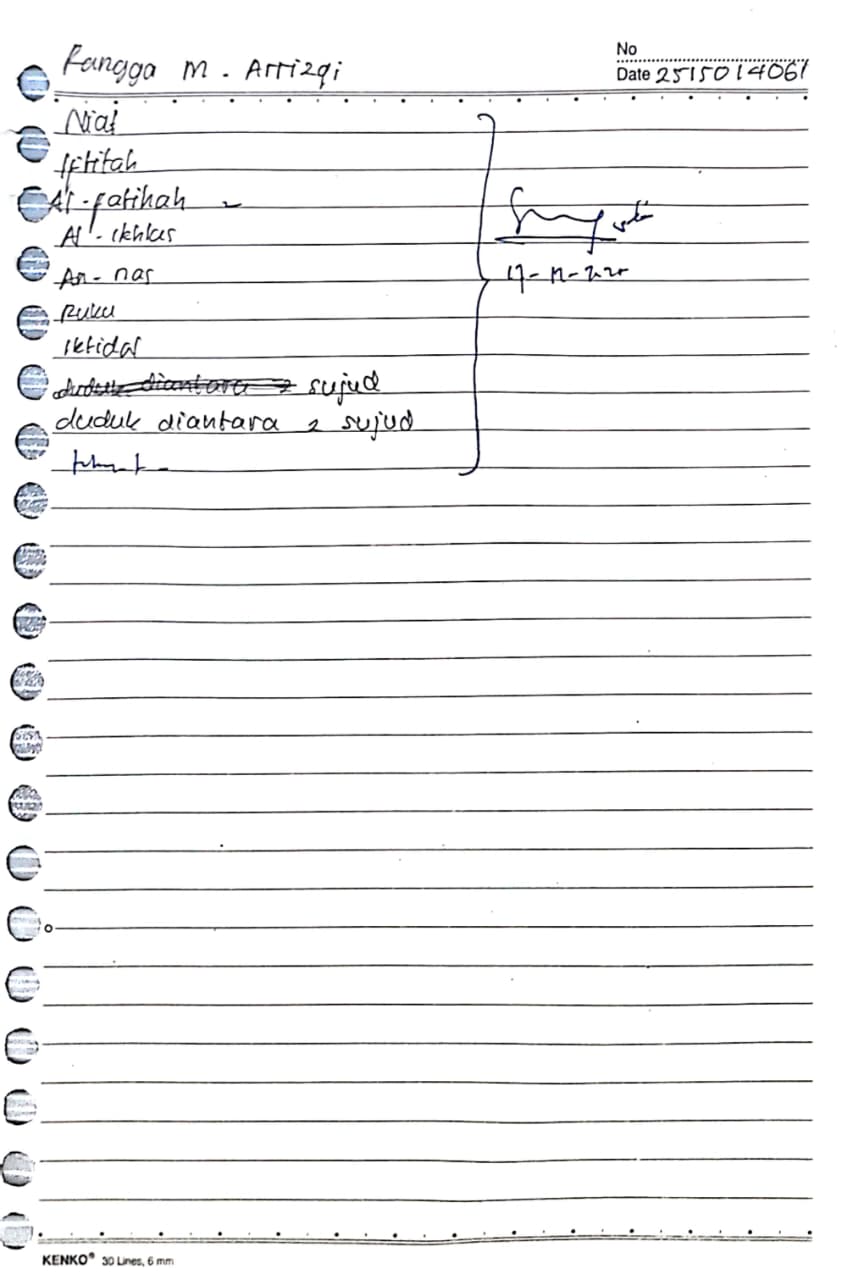 Rangga M. Arrizqi
No
Date 2515014061
Niat
Iftitah
Al-fatihah
Al-ikhlas
An-nas
Ruku
Iktidal
sujud
duduk diantara 2 sujud
KENKO® 30 Lines, 6 mm